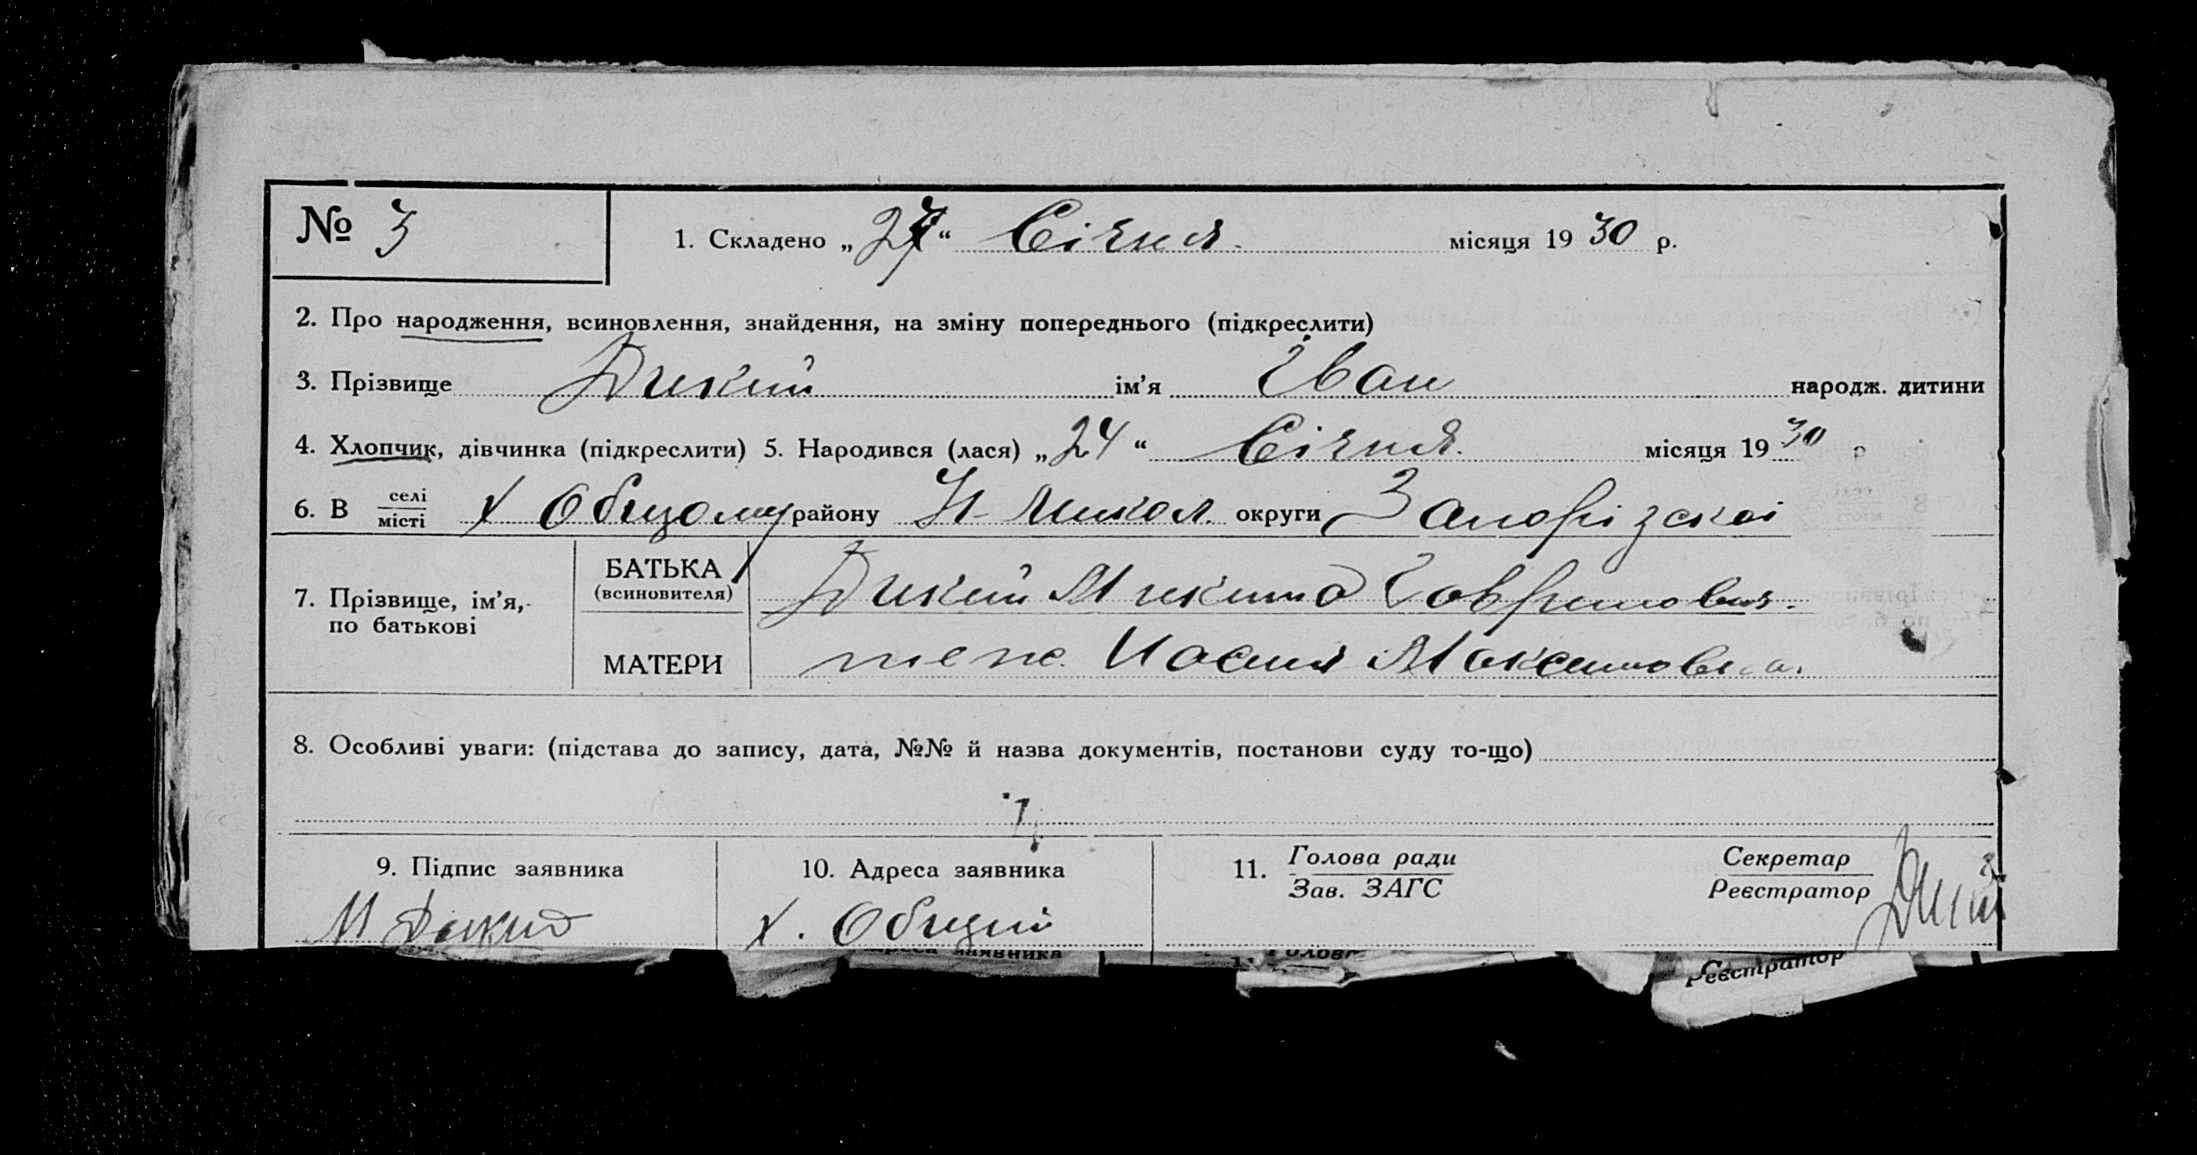 № 3
1. Складено „27“ Січня місяця 1930 р.
2. Про народження, всиновлення, знайдення, на зміну попереднього (підкреслити)
3. Прізвище Дикий ім’я Іван народж. дитини
4. Хлопчик, дівчинка (підкреслити) 5. Народився (лася) „24“ Січня місяця 1930 р
6. В селі місті х Общому району Н-Микол. округи Запорізскої
7. Прізвище, ім’я, по батькові
БАТЬКА (всиновителя) Дикий Микита Говрилович.
МАТЕРИ теж. Максимовна.
8. Особливі уваги: (підстава до запису, дата, №№ й назва документів, постанови суду то-що)
9. Підпис заявника
М Дикий
10. Адреса заявника
х. Общий
11. Голова ради
Зав. ЗАГС
Секретар
Реєстратор
Реєстратор